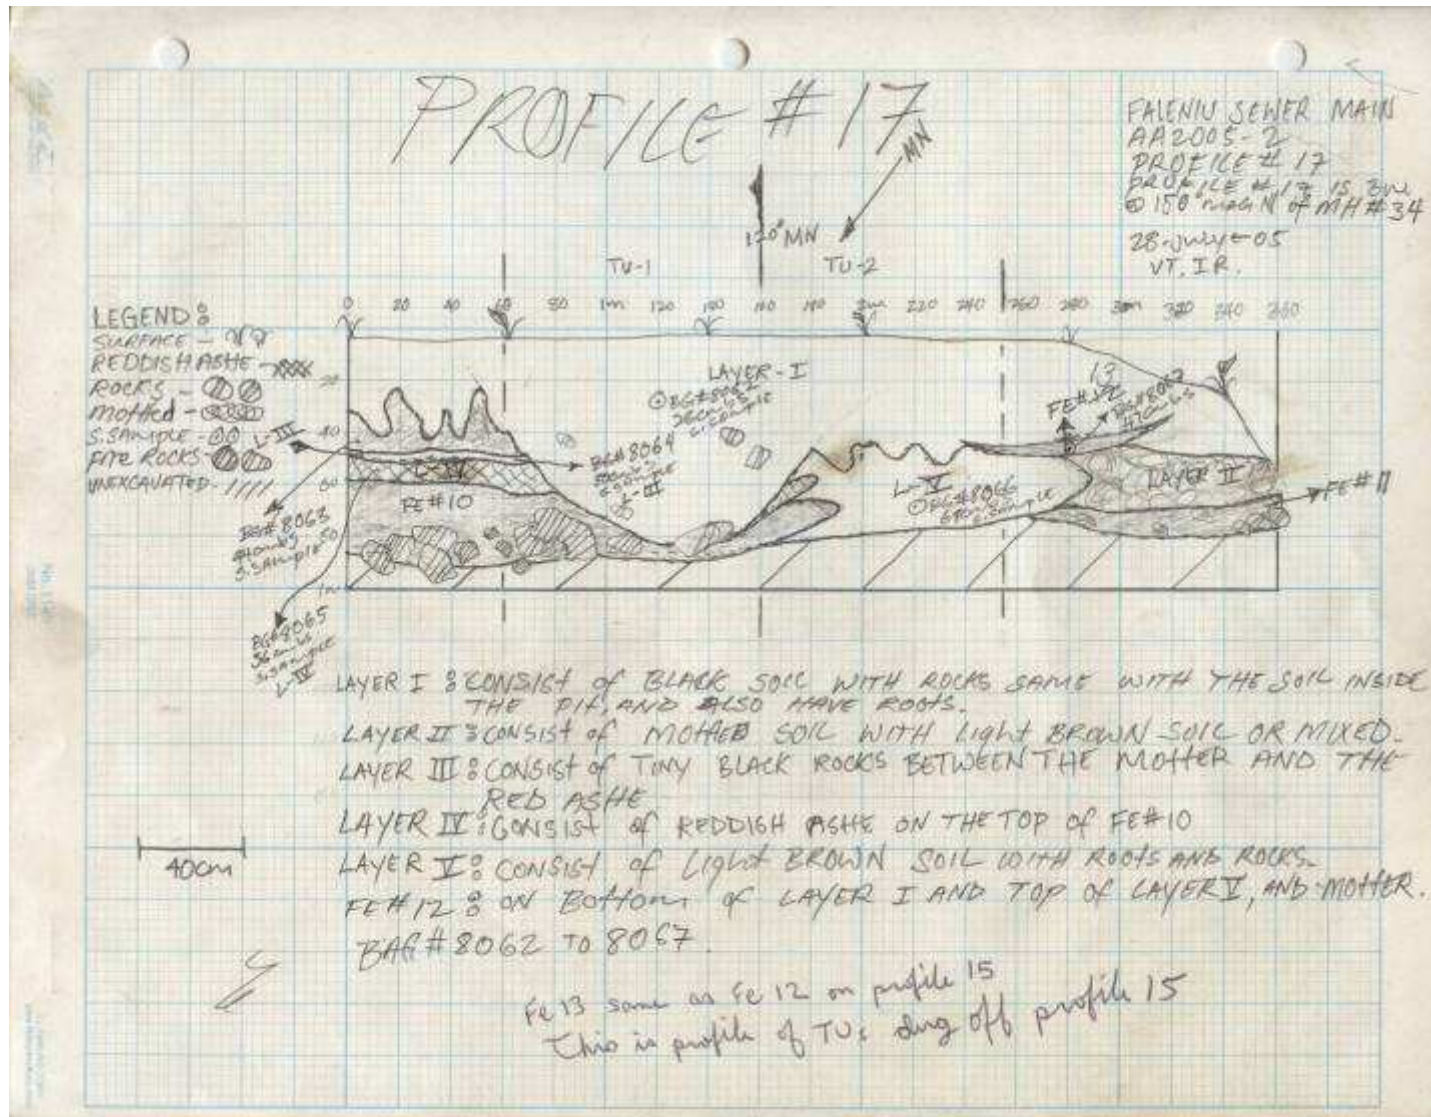 PROFILE # 17
MN
FALENIU SEWER MAIN
AA2005-2
PROFILE # 17
PROFILE # 17 IS 3m
@ 150° mag N of MH #34
28-July-05
VT. IR.
120° MN
TU-1
TU-2
0 20 40 60 80 1m 120 140 160 180 2m 220 240 260 280 3m 320 340 360
LEGEND:
SURFACE -
REDDISH ASHE -
ROCKS -
MOTTED -
S.SAMPLE -
FIRE ROCKS -
UNEXCAVATED -
20
40
60
80
1m
L-III
L-IV
FE#10
LAYER-I
BG#8062
S.SAMPLE
BG#8064
S.SAMPLE
L-III
13
FE#12
BG#8067
47cmbs
L-V
BG#8066
S.SAMPLE
LAYER II
FE#11
BG#8063
S.SAMPLE
BG#8065
56cmbs
S.SAMPLE
L-IV
LAYER I : CONSIST of BLACK SOIL WITH ROCKS SAME WITH THE SOIL INSIDE
THE PIT, AND ALSO HAVE ROOTS.
LAYER II : CONSIST of MOTTED SOIL WITH Light BROWN SOIL OR MIXED.
LAYER III : CONSIST of TINY BLACK ROCKS BETWEEN THE MOTTER AND THE
RED ASHE
LAYER IV : CONSIST of REDDISH ASHE ON THE TOP of FE#10
LAYER V : CONSIST of Light BROWN SOIL WITH ROOTS AND ROCKS.
FE#12 : ON Bottom of LAYER I AND TOP of LAYER V, AND MOTTER.
BAG # 8062 TO 8067.
40cm
Fe 13 same as Fe 12 on profile 15
This is profile of TUs dug off profile 15